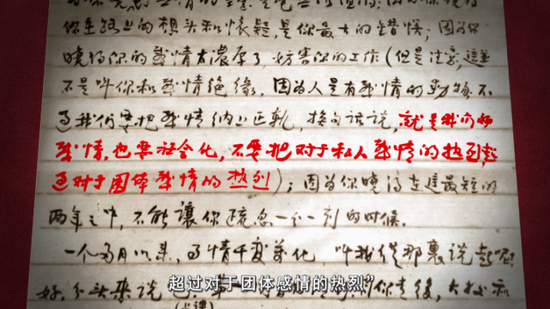 你至路上的想头和懷疑，是你最大的錯悮；因为你
曉得你的感情太濃厚了，妨害你的工作（但是注意，這並
不是叫你和感情绝缘，因为人是有感情的動物，不
过我们要把感情纳入正軌，换句话说，就是我们的
感情，也要社会化，不要把对于私人感情的热烈超
过对于团体感情的热烈）；因为你曉得在這最短的
两年之中，不能讓你疏忽一分一刻的时候。
一个多月以来，事情千变萬化，叫我從那裏说起呢
好，分头来说吧，你走後，大叔和
超过对于团体感情的热烈”